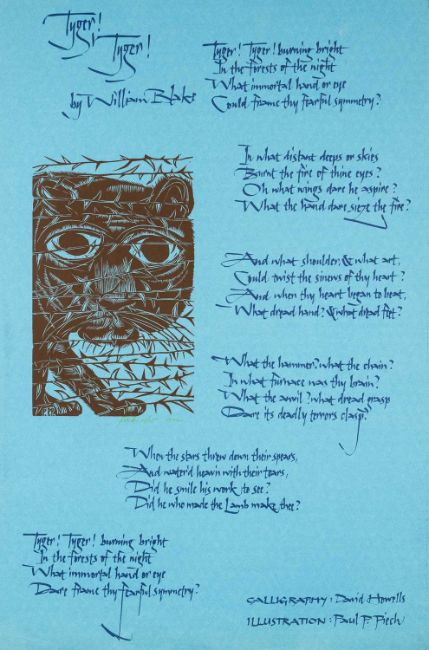 Tyger!
Tyger!
by William Blake
Tyger! Tyger! burning bright
In the forests of the night
What immortal hand or eye
Could frame thy fearful symmetry?
In what distant deeps or skies
Burnt the fire of thine eyes?
On what wings dare he aspire?
What the hand dare sieze the fire?
And what shoulder, & what art,
Could twist the sinews of thy heart?
And when thy heart began to beat,
What dread hand? & what dread feet?
What the hammer? what the chain?
In what furnace was thy brain?
What the anvil? what dread grasp
Dare its deadly terrors clasp?
When the stars threw down their spears,
And water'd heav'n with their tears,
Did he smile his work to see?
Did he who made the Lamb make thee?
Tyger! Tyger! burning bright
In the forests of the night
What immortal hand or eye
Dare frame thy fearful symmetry?
CALLIGRAPHY: David Howells
ILLUSTRATION: Paul P. Piech